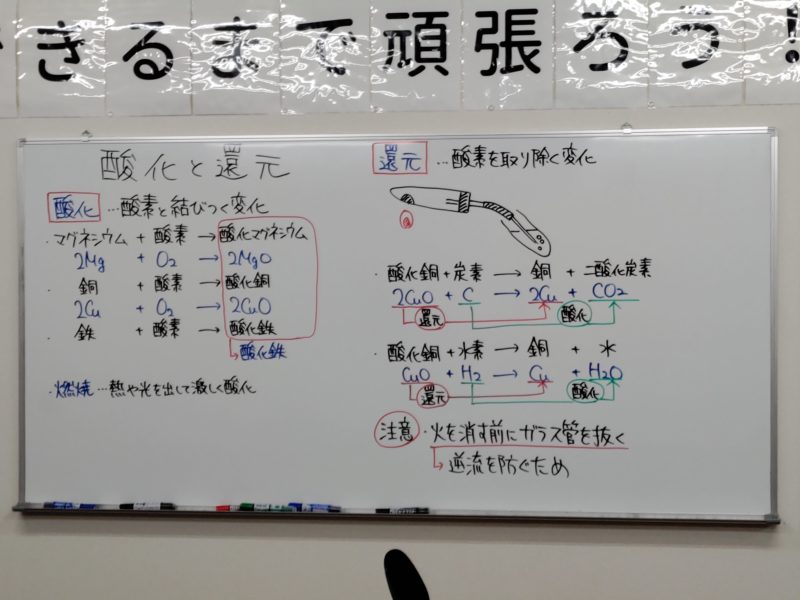 できるまで頑張ろう!
酸化と還元
酸化 …酸素と結びつく変化
・マグネシウム + 酸素 → 酸化マグネシウム
2Mg + O₂ → 2MgO
・銅 + 酸素 → 酸化銅
2Cu + O₂ → 2CuO
・鉄 + 酸素 → 酸化鉄
↳酸化鉄
・燃焼 …熱や光を出して激しく酸化
還元 …酸素を取り除く変化
・酸化銅+炭素 → 銅 + 二酸化炭素
2CuO + C → 2Cu + CO2
還元 酸化
・酸化銅+水素 → 銅 + 水
CuO + H₂ → Cu + H₂O
還元 酸化
注意・火を消す前にガラス管を抜く
↳逆流を防ぐため